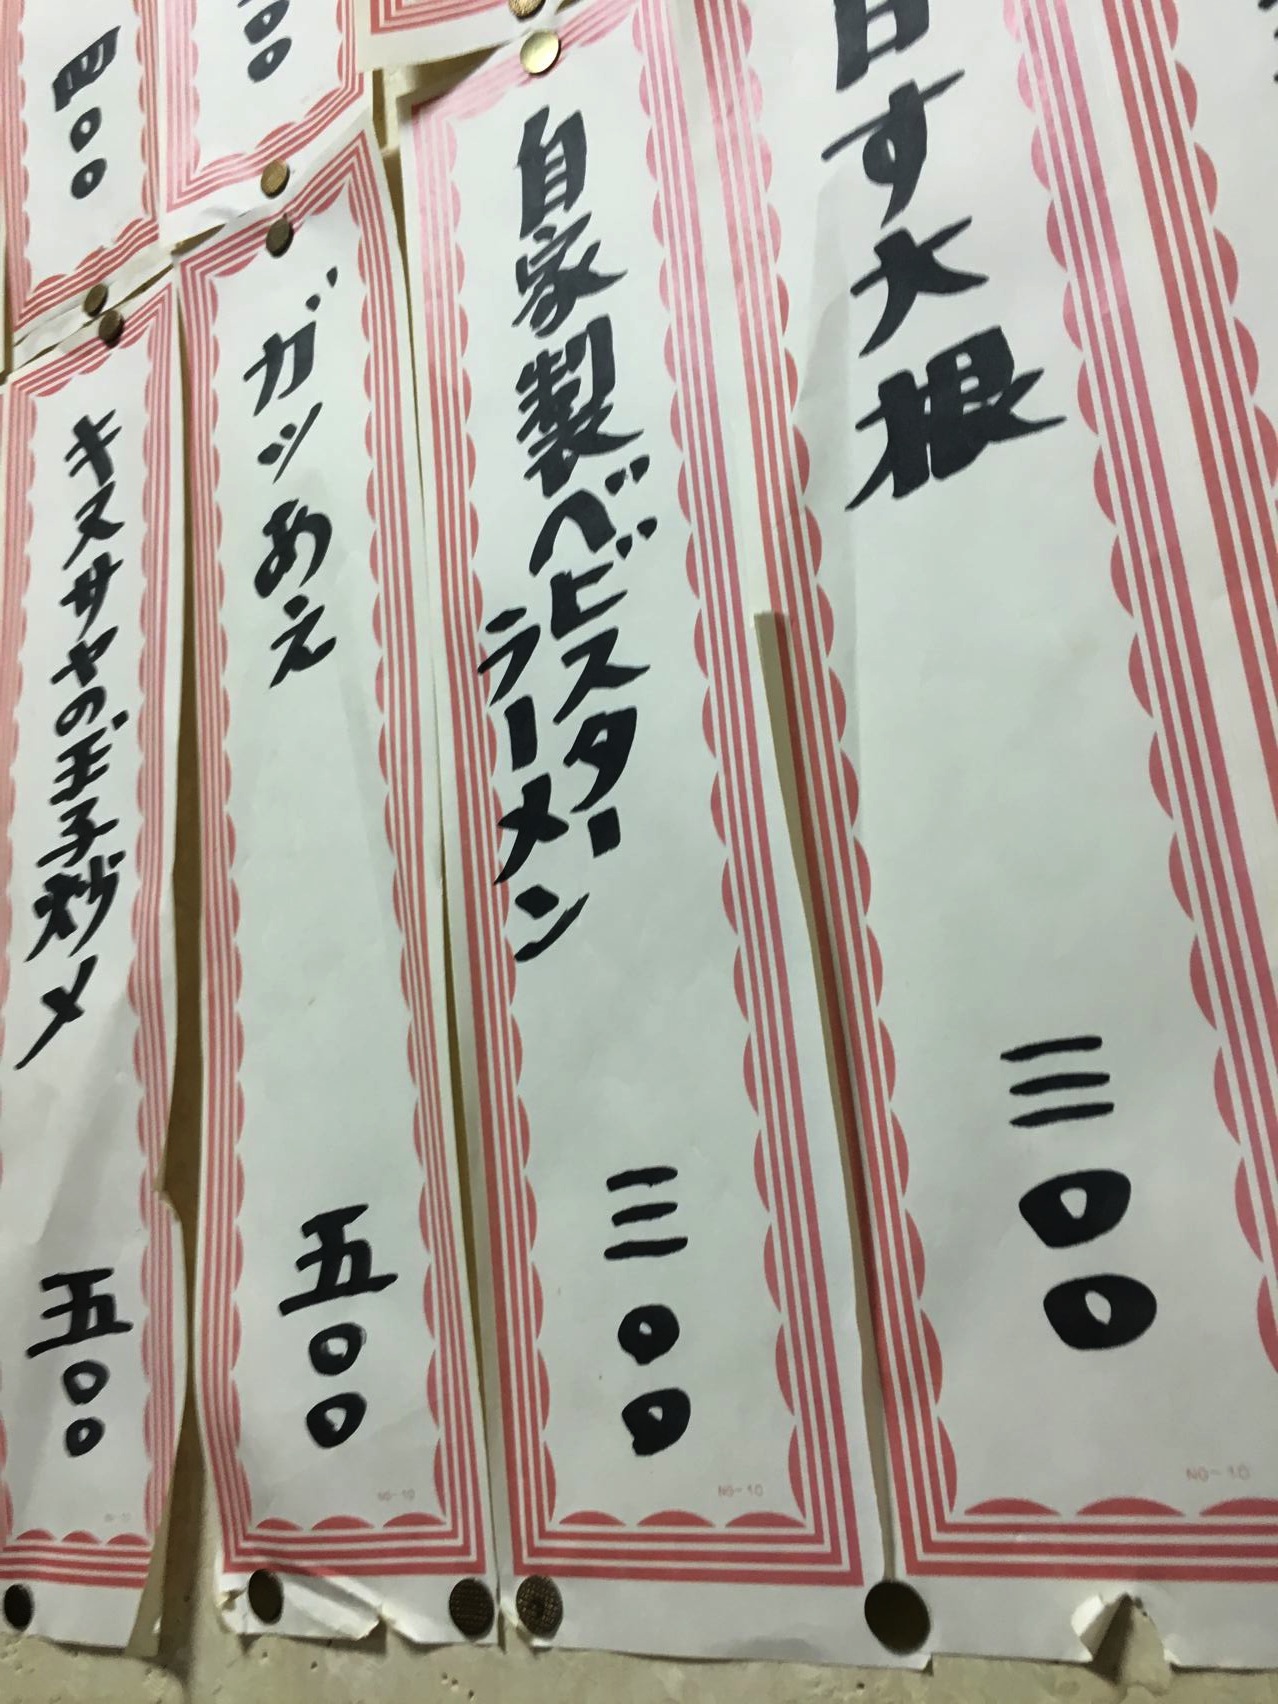 す大根
三〇〇
自家製ベビスター
ラーメン
三〇〇
ガツあえ
五〇〇
キヌサヤの玉子炒メ
五〇〇
〇〇
四〇〇
NO-10
NO-10
NO-10